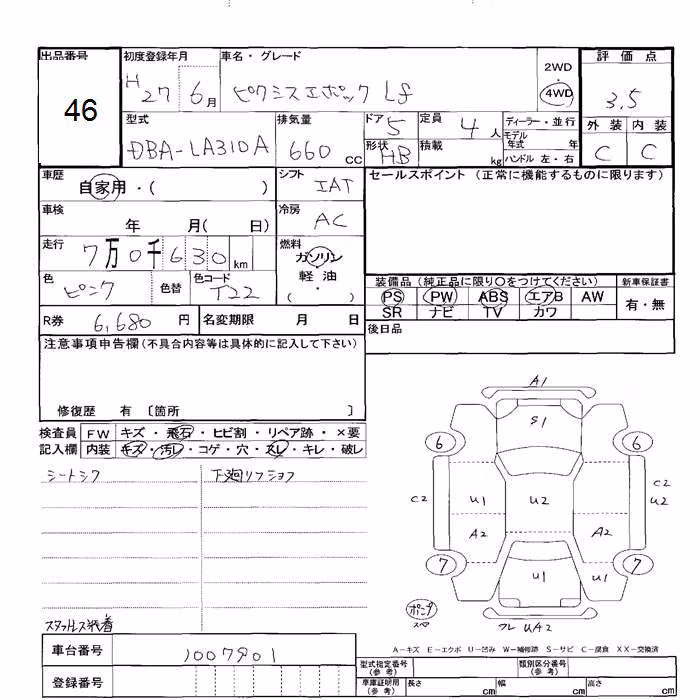 出品番号
46
初度登録年月
H27 6月
車名・グレード
ピクシスエポック Lf
2WD
・
4WD
評価点
3.5
外装 内装
C C
型式
DBA-LA310A
排気量
660 cc
ドア 5
定員 4 人
形状 HB
積載 kg
ディーラー・並行
モデル年式 年
ハンドル 左・右
車歴
自家用・( )
シフト
IAT
車検
年 月( 日)
冷房
AC
走行
7万0千630km
燃料
ガソリン
軽・油
( ・ )
色
ピンク
色替
色コード
T22
R券 6,680 円
名変期限 月 日
セールスポイント (正常に機能するものに限ります)
装備品(純正品に限り○をつけてください)
PS PW ABS エアB AW
SR ナビ TV カワ
新車保証書
有・無
後日品
注意事項申告欄(不具合内容等は具体的に記入して下さい)
修復歴 有 〔箇所 〕
検査員記入欄
FW キズ・飛石・ヒビ割・リペア跡・×要
内装 キズ・汚レ・コゲ・穴・スレ・キレ・破レ
シートシワ
下廻リフショク
スタッドレス装着
A1
S1
6 6
C2 U1 U2 C2 U2
A2 A2
7 7
U1 U1
パンク
スペア
フレ UA2
A-キズ E-エクボ U-凹み W-補修跡 S-サビ C-腐食 XX-交換済
車台番号
1007901
登録番号
型式指定番号(参考)
類別区分番号(参考)
車庫証明用(参考)
長さ cm 幅 cm 高さ cm